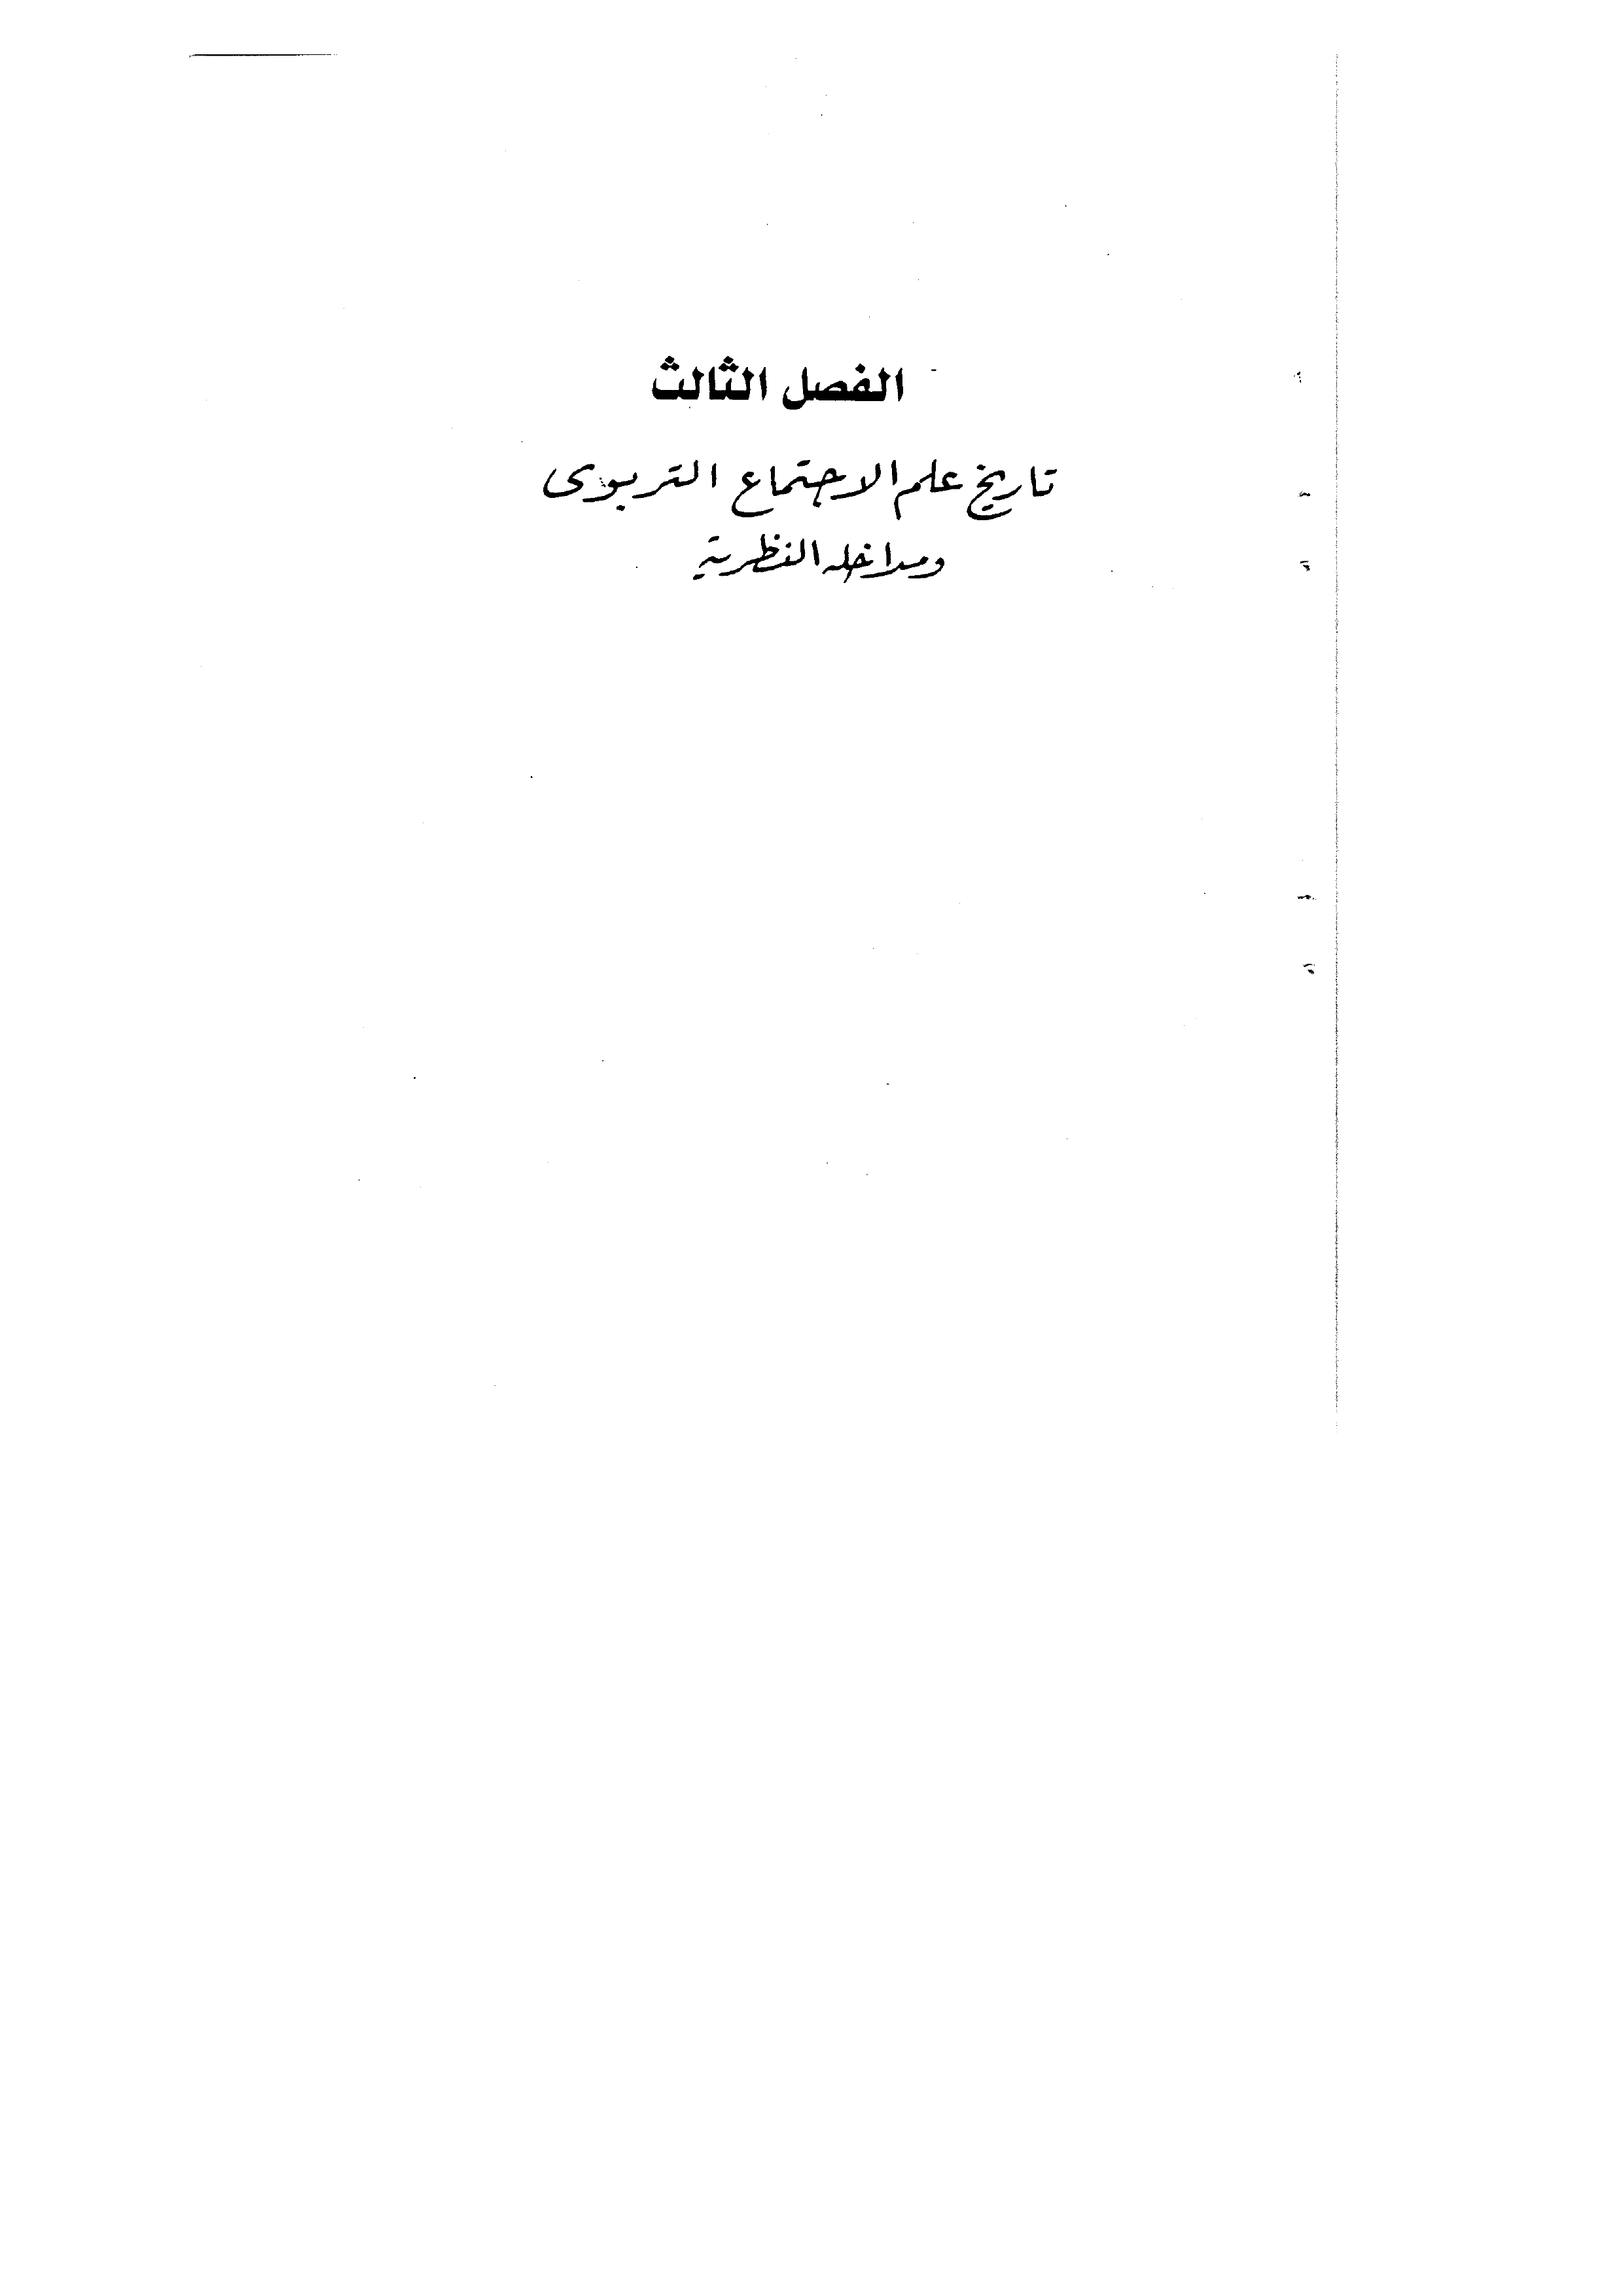 الفصل الثالث
تاريخ علم الاجتماع التربوى
ومداخله النظرية